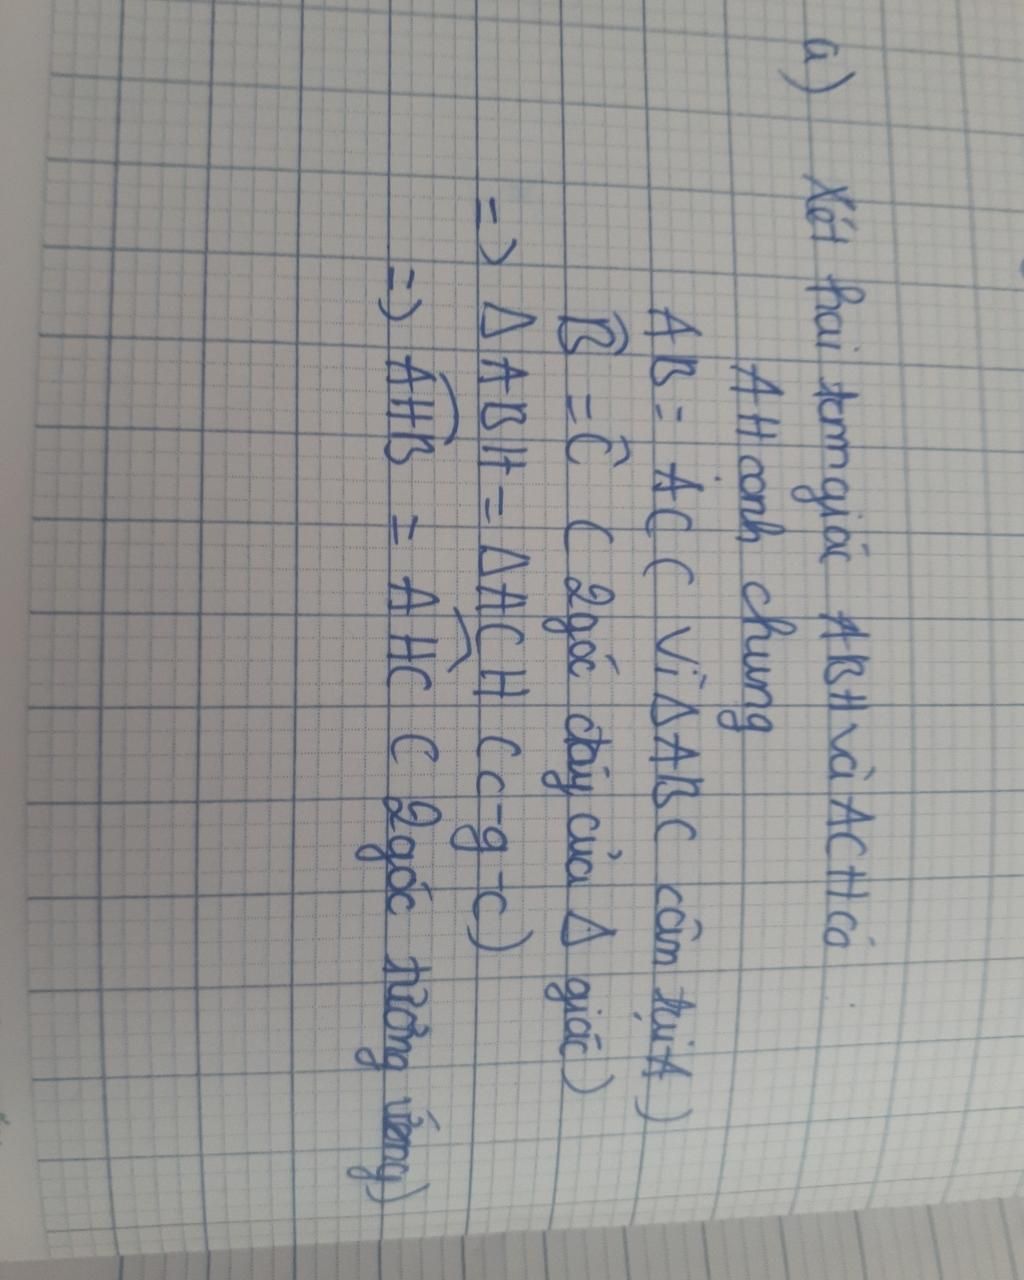 a) Xét hai tam giác ABH và ACH có
AH cạnh chung
AB = AC ( Vì Δ ABC cân tại A )
B̂ = Ĉ ( 2 góc đáy của Δ giác )
=> Δ ABH = Δ ACH ( c-g-c )
=> AHB = AHC ( 2 góc tương ứng )